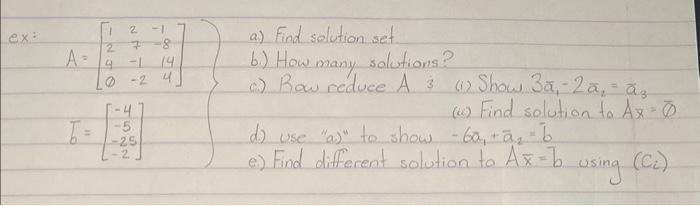 ex:
A = [1 2 -1
2 7 -8
4 -1 14
0 -2 4]
b̄ = [-4
-5
-25
-2]
a) Find solution set
b.) How many solutions?
c.) Row reduce A & (i) Show 3ā₁ - 2ā₂ = ā₃
(ii) Find solution to Ax̄ = 0̄
d) use "a)" to show -6ā₁ + ā₂ = b̄
e.) Find different solution to Ax̄ = b̄ using (Ci)